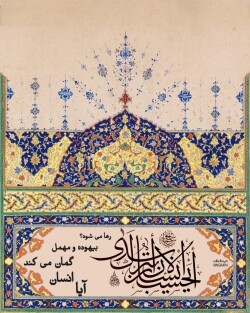 أيحسب الإنسان أن يترك سدى
آیا
انسان
گمان می کند
بیهوده و مهمل
رها می شود؟